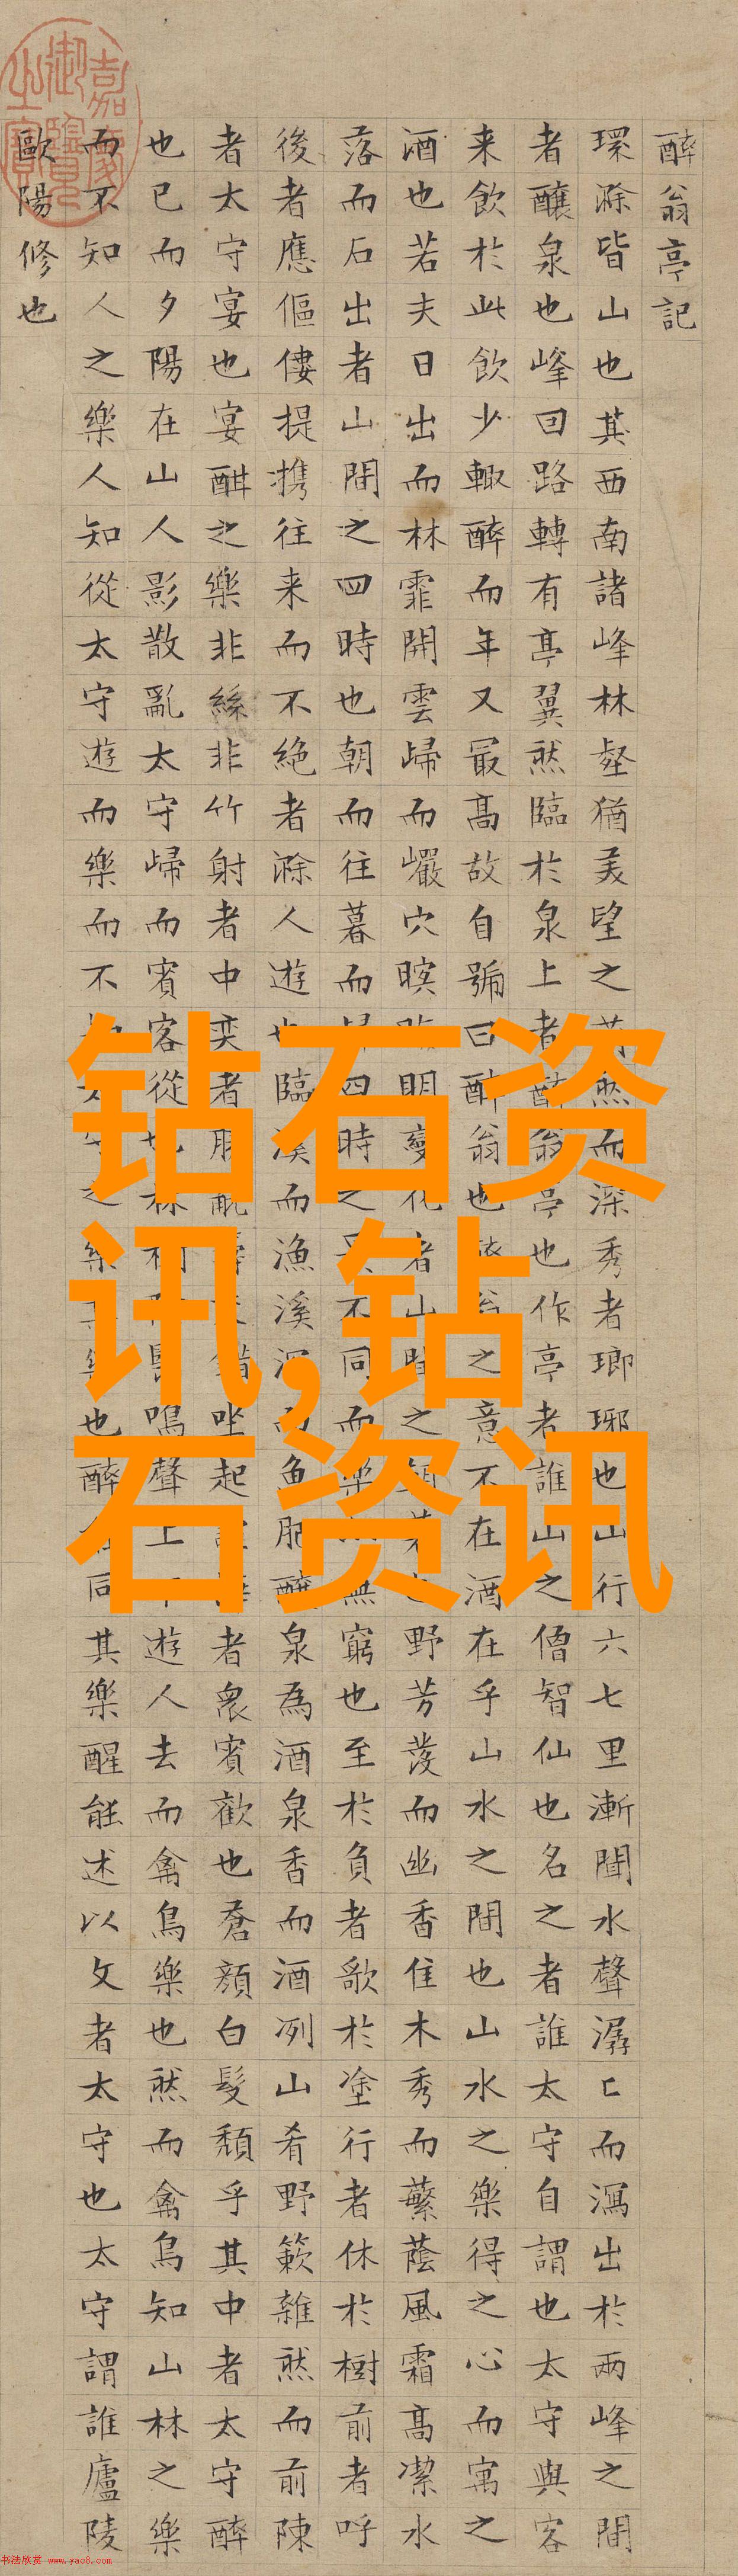 醉翁亭記
環滁皆山也其西南諸峰林壑猶美望之蔚然而深秀者瑯琊也山行六七里漸聞水聲潺匕而瀉出於兩峰之間
者釀泉也峰回路轉有亭翼然臨於泉上者醉翁亭也作亭者誰山之僧智仙也名之者誰太守自謂也太守與客
来飲於此飲少輒醉而年又最高故自號曰醉翁也醉翁之意不在酒在乎山水之間也山水之樂得之心而寓之
酒也若夫日出而林霏開雲歸而巖穴暝晦明變化者山間之朝暮也野芳發而幽香佳木秀而蘩蔭風霜高潔水
落而石出者山間之四時也朝而往暮而歸四時之景不同而樂無窮也至於負者歌於塗行者休於樹前者呼
後者應傴僂提携往来而不絕者滁人遊也臨溪而漁溪深而魚肥釀泉為酒泉香而酒冽山肴野簌雜然而前陳
者太守宴也宴酣之樂非絲非竹射者中奕者勝觥籌交錯坐起者衆賓歡也蒼顏白髮頹乎其中者太守醉
也已而夕陽在山人影散亂太守歸而賓客從也林翳鳴聲上下遊人去而禽鳥樂也然而禽鳥知山林之樂
而不知人之樂人知從太守遊而樂而不知太守之樂其樂也醉能同其樂醒能述以文者太守也太守謂誰廬陵
歐陽修也
嘉慶御覽之寶
钻石资
讯,钻
石资讯
书法欣赏 www.yac8.com